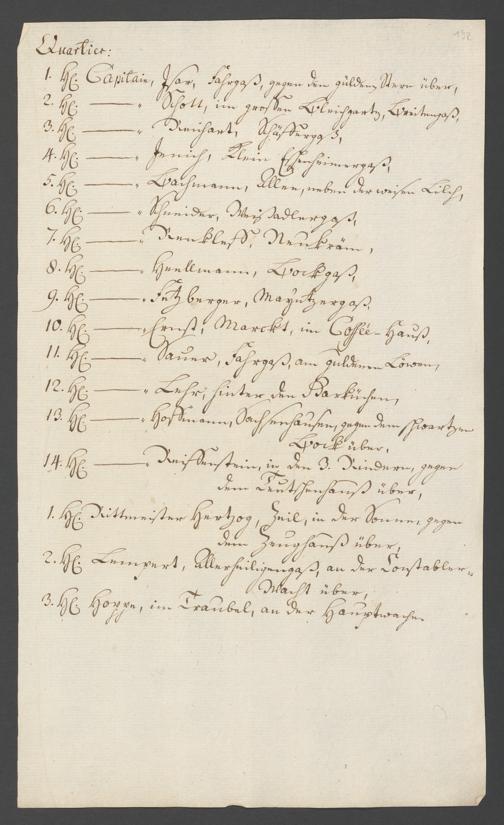 192
Quartier:
1. H. Capitain, Isar, Fahrgaß, gegen den güldenen Stern über,
2. H. — " Schott, im grossen Bleichgarten, Breitengaß,
3. H. — " Reichart, Schäffergaß,
4. H. — " Jenich, Klein Eschenheimergaß,
5. H. — " Bachmann, Allee, neben der weisen Lilie,
6. H. — " Schneider, Weis Adlergaß,
7. H. — " Neukräm,
8. H. — " Heellmann, Bockgaß,
9. H. — " Fitzberger, Mayntzergaß,
10. H. — " Ernst, Marckt, im Coffé-Hauß,
11. H. — " Sauer, Fahrgaß, am güldenen Löwen,
12. H. — " Lehr, hinter den Barküchen,
13. H. — " Hoffmann, Sachsenhausen, gegen dem schwartzen
Bock über,
14. H. — " Reiffenstein, in den 3. Rindern, gegen
dem Teutschenhauß über,
1. H. Rittmeister Hertzog, Zeil, in der Sonne, gegen
dem Zeughauß über,
2. H. Lempert, Allerheiligengaß, an der Constabler-
Wacht über,
3. H. Hoppe, im Traubel, an der Hauptwache.